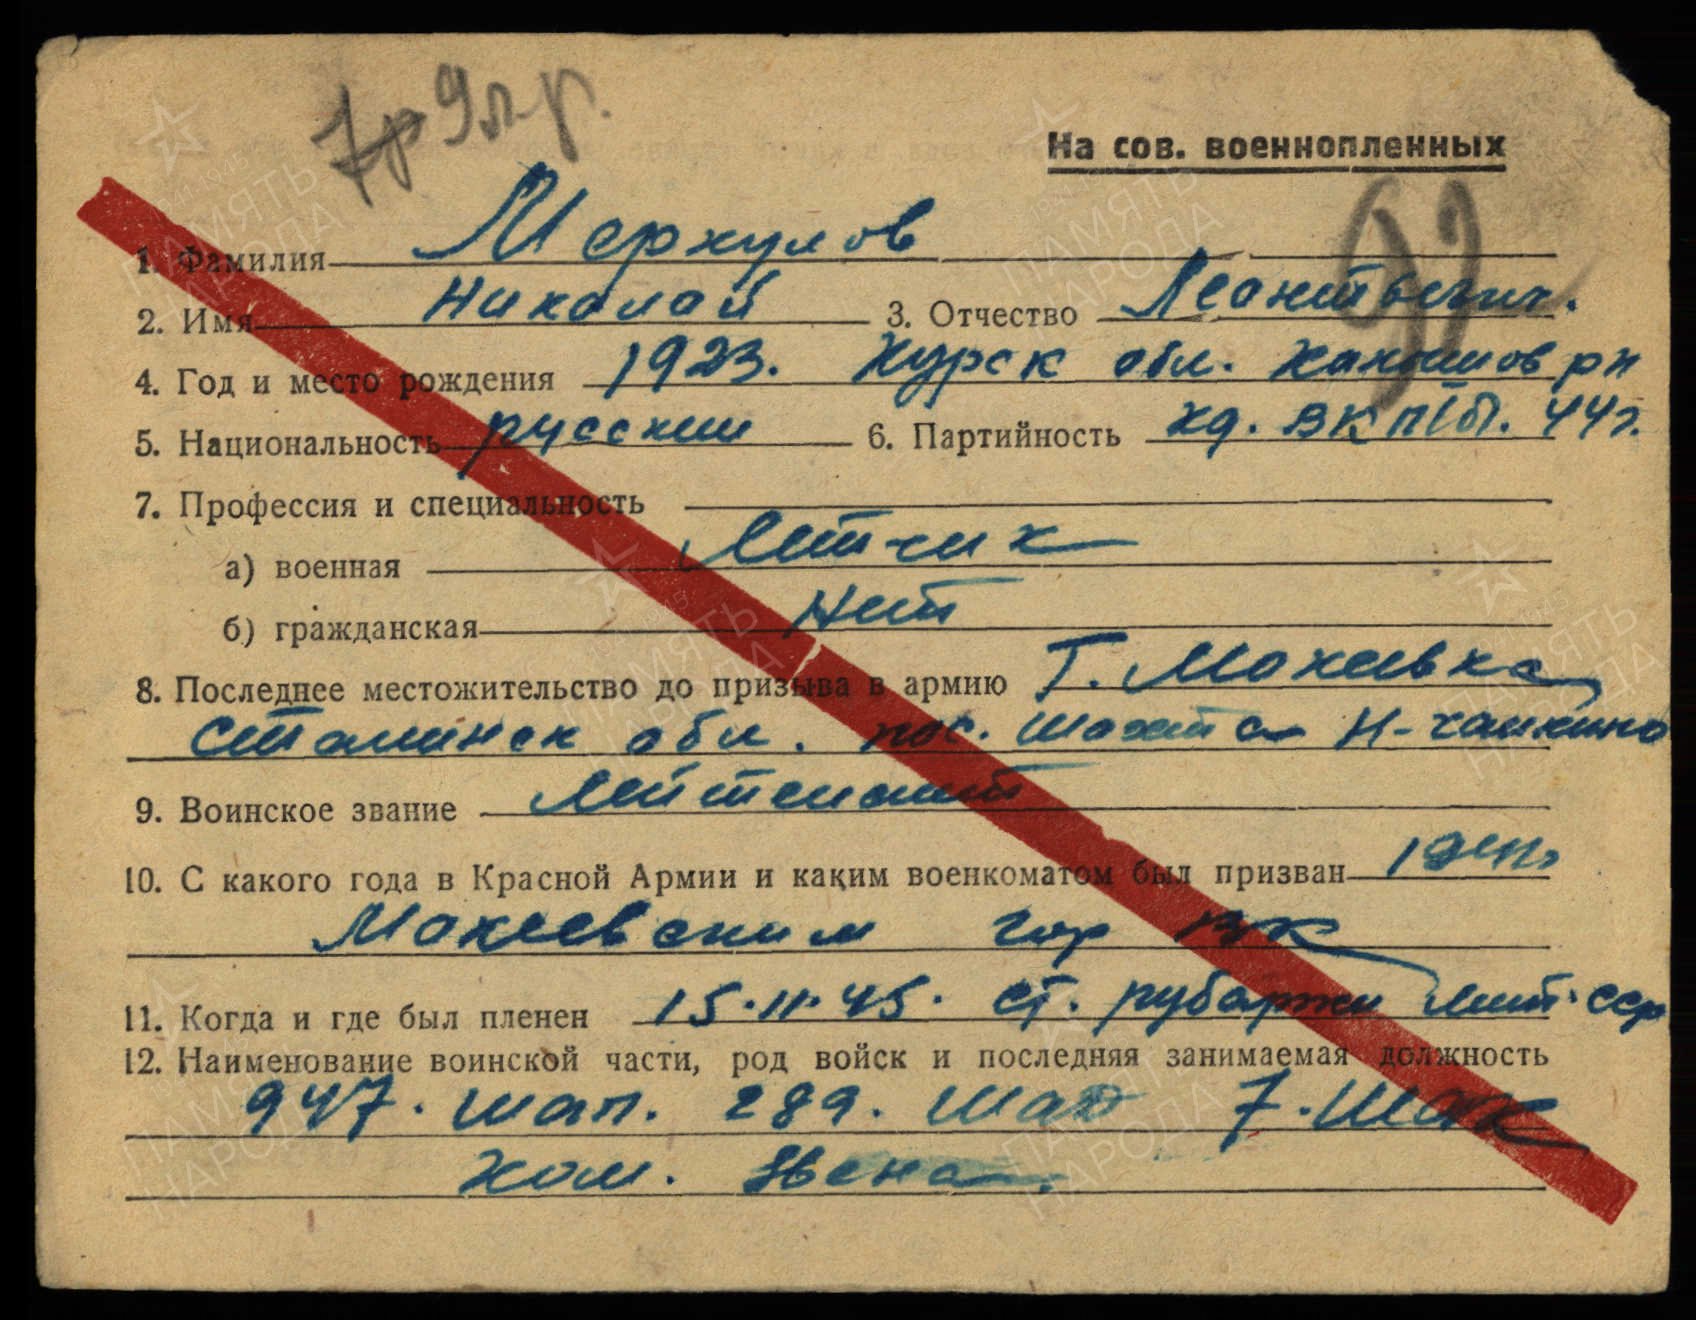 7р 9л.р.
На сов. военнопленных
92
1. Фамилия Меркулов
2. Имя Николай 3. Отчество Леонтьевич.
4. Год и место рождения 1923. Курск обл. рн
5. Национальность русский 6. Партийность кд. ВКП(б). 44г.
7. Профессия и специальность
а) военная Летчик
б) гражданская Нет
8. Последнее местожительство до призыва в армию г. Макеевка
Сталинск обл. пос. Шахта
9. Воинское звание лейтенант
10. С какого года в Красной Армии и каким военкоматом был призван
Макеевским гор ВК
11. Когда и где был пленен 15.11.45. ст. Лит. сср
12. Наименование воинской части, род войск и последняя занимаемая должность
947. шап. 289. Шад 7. ШАК
Ком. Звена.
1941-1945
ПАМЯТЬ
НАРОДА